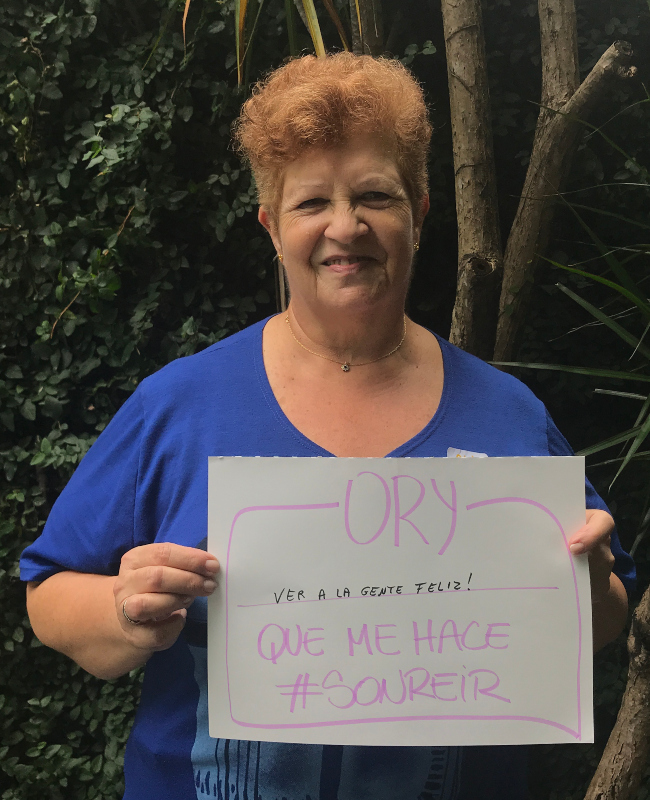 ORY
VER A LA GENTE FELIZ!
QUE ME HACE
#SONREIR